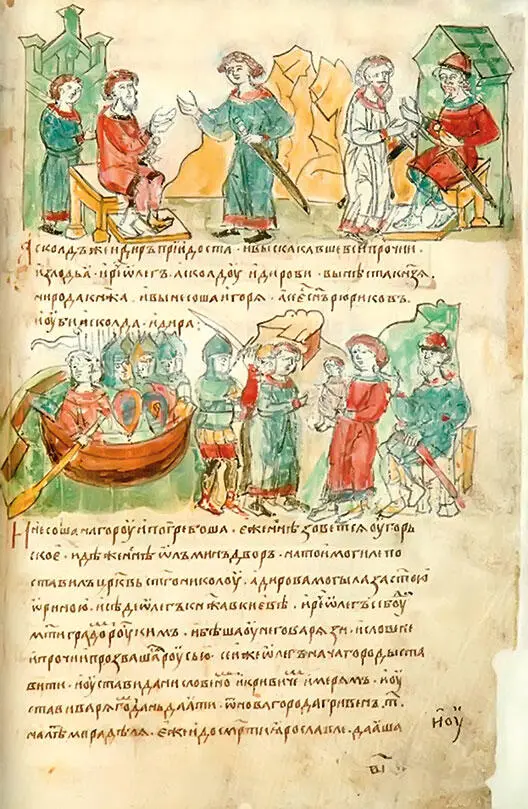 Асколдъ же и диръ прїидоста . и выскакавше вси прочии .
из лодьꙗ . и рⷱ҇е ѡлегъ асколдоу и дирови . вы нѣста кн҃зѧ
ни рода кнѧжа . и вынесоша игорѧ . а се єⷭ҇ сн҃ъ рюриковъ .
и оубиⷲ асколда и дира :
И несоша на гороу и погребоша . еже нн҃ѣ зоветсѧ оугорь
ское . идѣже нн҃ѣ ѡлъминъ дворъ . на тои могиле по
ставилъ црк҃вь ст҃го николоу . а дирова могыла за ст҃ою
ѡриною . и сѣде ѡлегъ кнѧжа в киевѣ . и рⷱ҇е ѡлегъ се боуⷣ
мт҃и градоⷨ роуⷭскимъ . и бѣша оу него варѧзи . и словене
и прочии прозвашаⷭ роусью . сеи же ѡлегъ нача городы ста
вити . и оустави дани словеноⷨ и кривичеⷨ и мерѧмъ . и оу
стави варѧгоⷨ дань даѧти . ѿ новагорода гривенъ . т҃ .
на лѣⷮ мира дѣлѧ . еже и до смр҃ти ꙗрославле . даꙗша
и оу